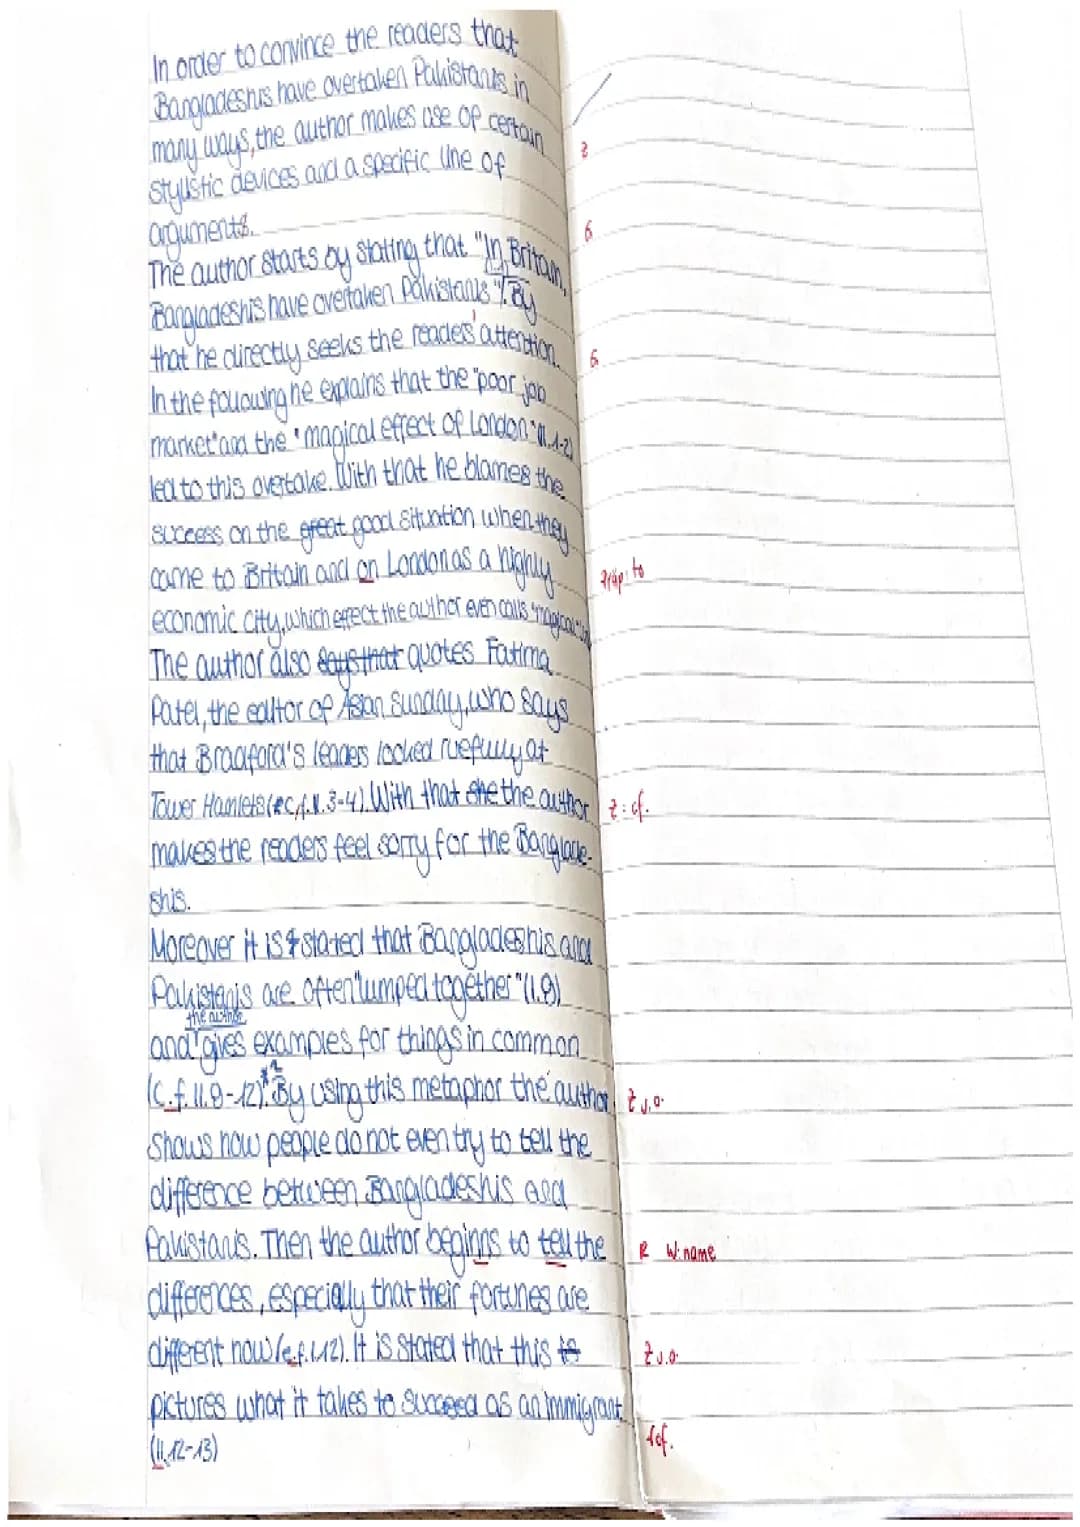 In order to convince the readers that
Bangladeshis have overtaken Pakistanis in
many ways, the author makes use of certain
stylistic devices and a specific line of
arguments.
The author starts by stating that "In Britain,
Bangladeshis have overtaken Pakistanis". By
that he directly seeks the reades' attention.
In the following he explains that the "poor job
market" and the "magical effect of London" (ll.1-2)
led to this overtake. With that he blames the
success on the great good situation when they
came to Britain and on London as a highly
economic city, which effect the author even calls "magical"
The author also says that quotes Fatima
Patel, the editor of Asian Sunday, who says
that Bradford's leaders looked ruefully at
Tower Hamlets (c.f. ll.3-4). With that she the author
makes the readers feel sorry for the Banglade-
shis.
Moreover it is stated that Bangladeshis and
Pakistanis are often "lumped together" (l.9)
the author
and gives examples for things in common
(c.f. ll.9-12)*2. By using this metaphor the author
shows how people do not even try to tell the
difference between Bangladeshis and
Pakistanis. Then the author beginns to tell the
differences, especially that their fortunes are
different now (c.f. l.12). It is stated that this is
pictures what it takes to succeed as an immigrant
(ll.12-13)
z
G
G
Präp: to
z: cf.
z s.o.
R W: name
z s.o.
f cf.